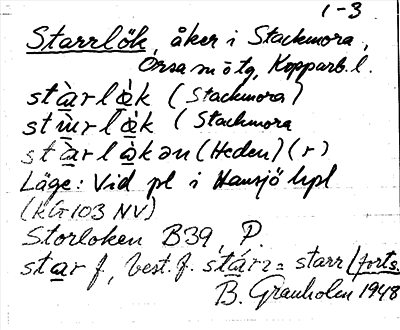 1-3
Starrlök, åker i Stackmora,
Orsa sn ötg, Kopparb. l.
stàrlø̀k (Stackmora)
stàrlø̀k (Stackmora
stàrlø̀kən (Heden) (r)
Läge: Vid pl i Hansjö hpl
(KG 103 NV)
Storloken B39, P.
star f, best. f. stárɪ = starr (forts.
B. Granholm 1948